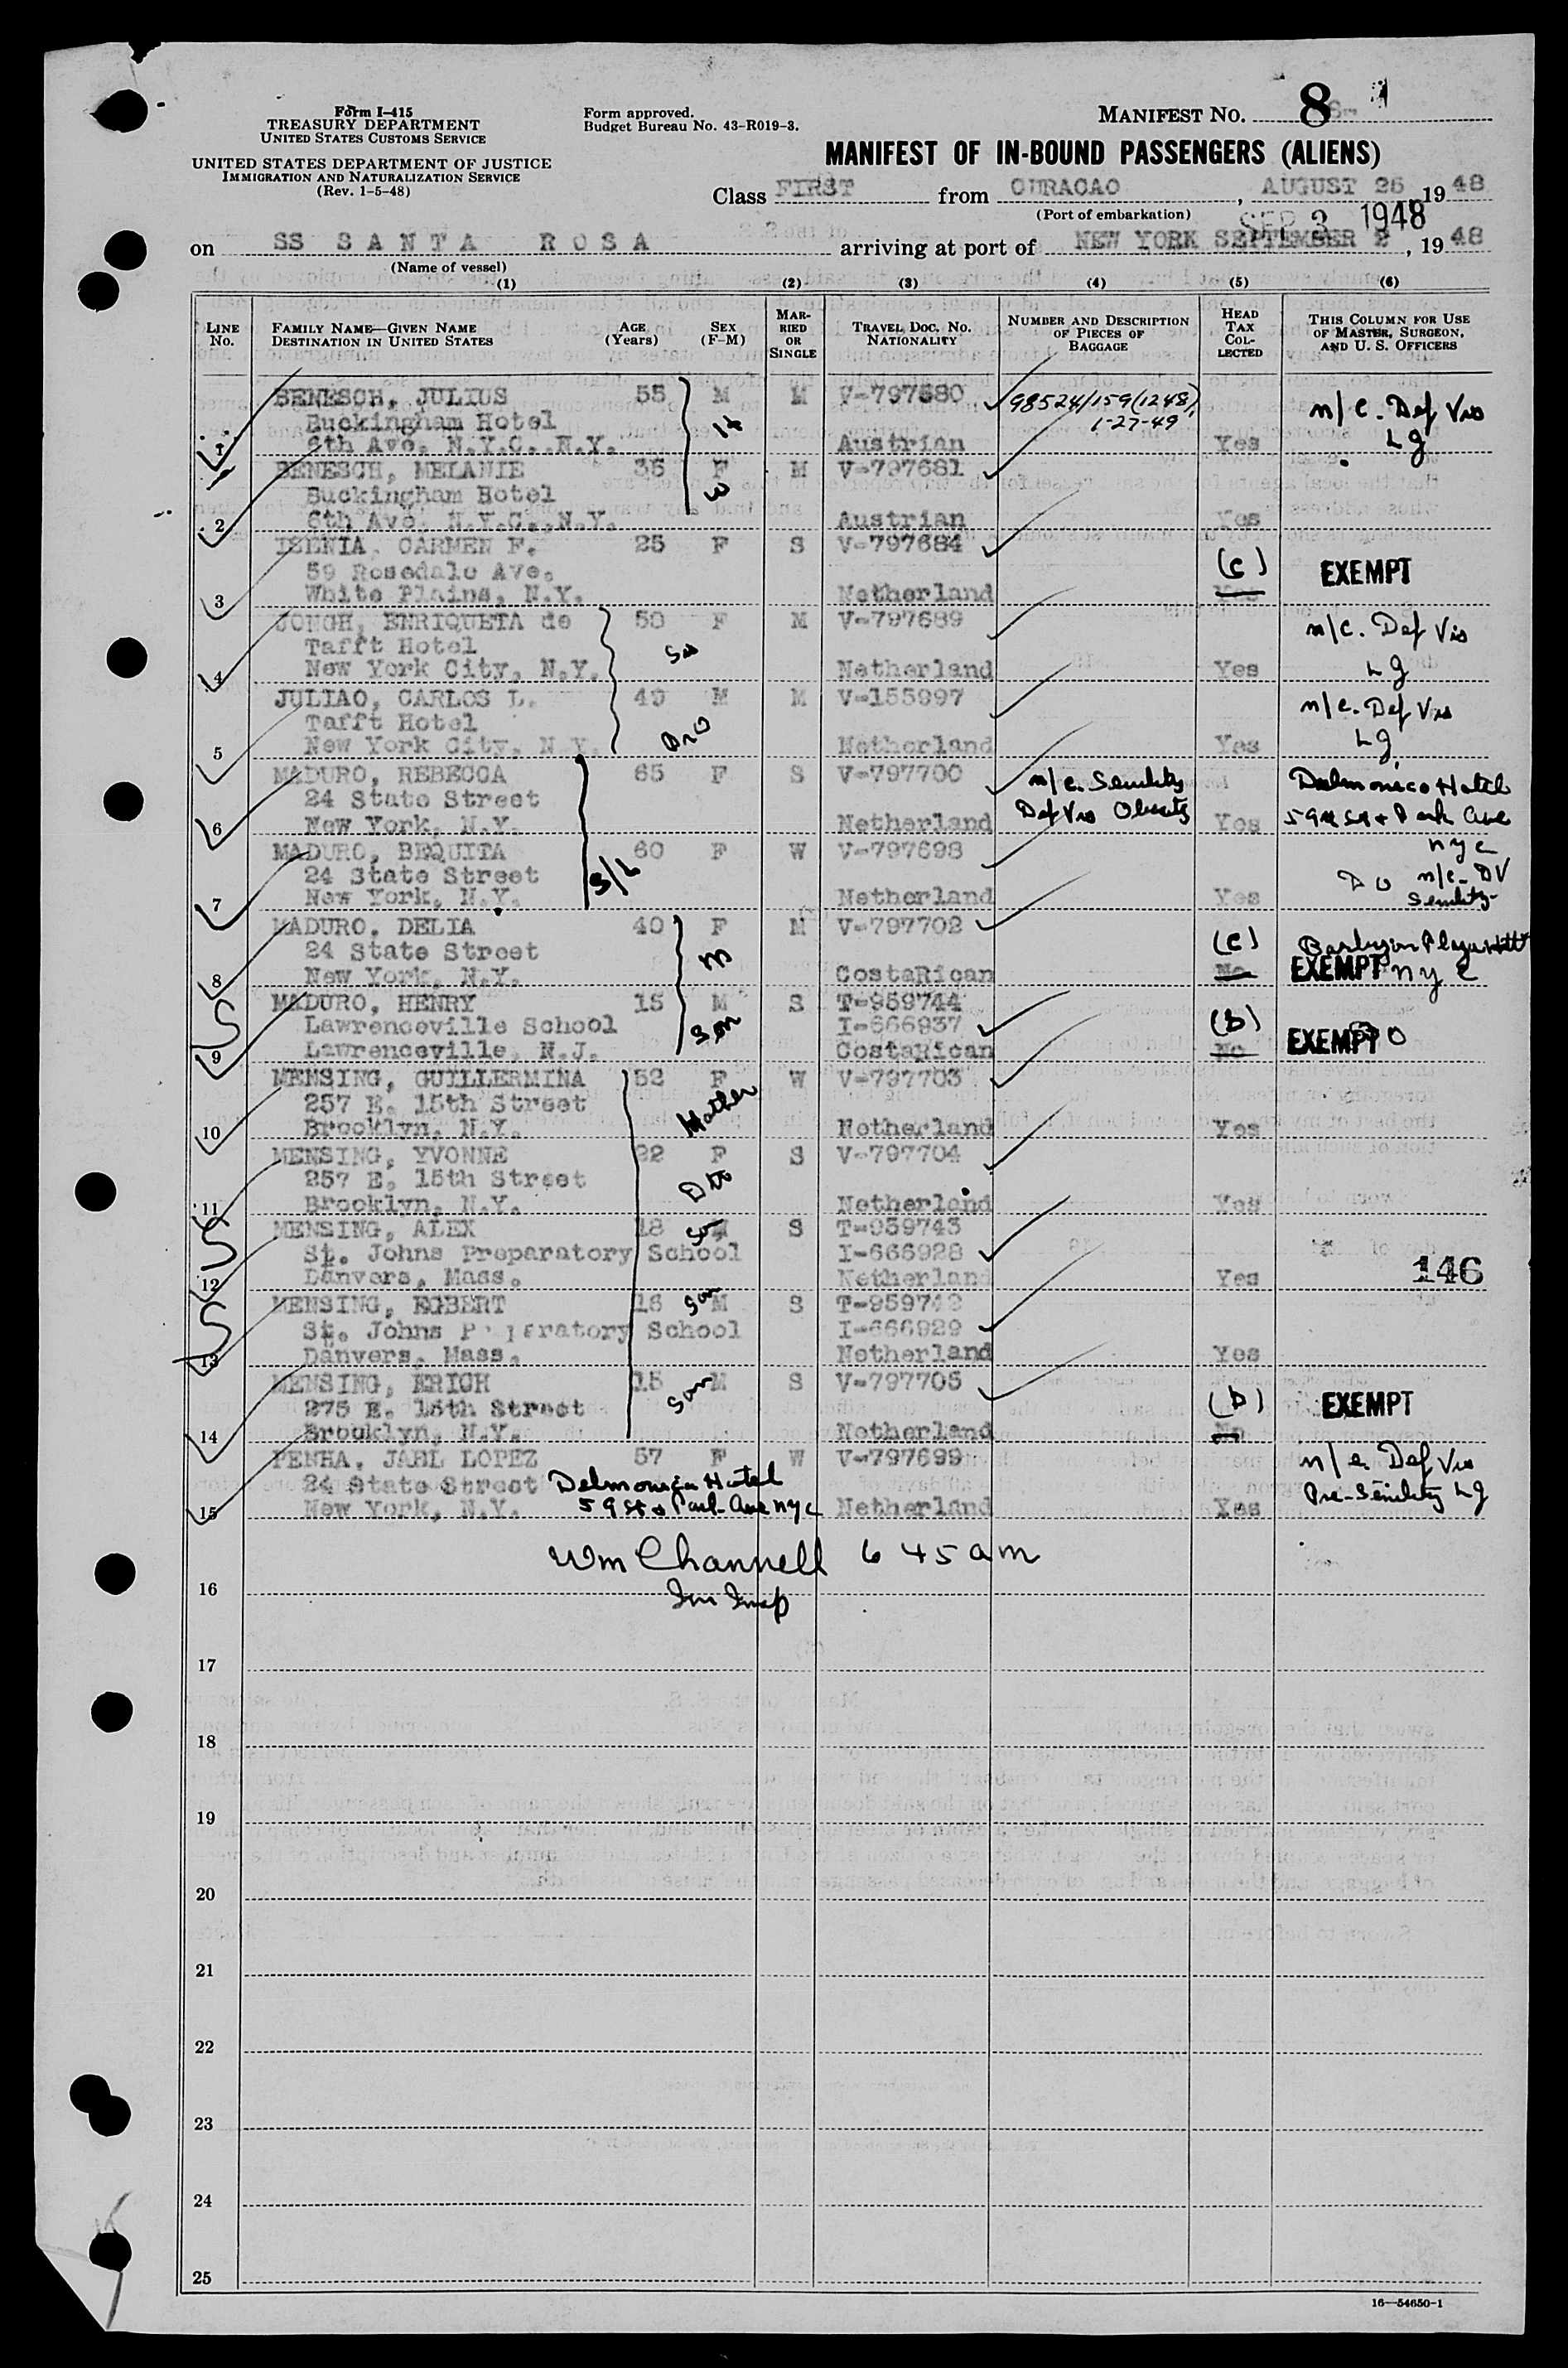 Form I-415
TREASURY DEPARTMENT
UNITED STATES CUSTOMS SERVICE
UNITED STATES DEPARTMENT OF JUSTICE
IMMIGRATION AND NATURALIZATION SERVICE
(Rev. 1-5-48)
Form approved.
Budget Bureau No. 43-R019-3.
MANIFEST NO. 8
MANIFEST OF IN-BOUND PASSENGERS (ALIENS)
Class FIRST from CURACAO, AUGUST 25, 1948
(Port of embarkation)
SEP 3 1948
on SS SANTA ROSA arriving at port of NEW YORK SEPTEMBER 2, 1948
(Name of vessel)
(1) (2) (3) (4) (5) (6)
LINE No. FAMILY NAME—GIVEN NAME DESTINATION IN UNITED STATES AGE (Years) SEX (F-M) MARRIED OR SINGLE TRAVEL DOC. NO. NATIONALITY NUMBER AND DESCRIPTION OF PIECES OF BAGGAGE HEAD TAX COLLECTED THIS COLUMN FOR USE OF MASTER, SURGEON, AND U. S. OFFICERS
BENESCH, JULIUS 55 M M V-797680 98524/159(1248) n/c. Def Vis
Buckingham Hotel H 1-27-49 Lg
1 6th Ave. N.Y.C.,N.Y. Austrian Yes
BENESCH, MELANIE 35 F M V-797681
Buckingham Hotel W
2 6th Ave. N.Y.C.,N.Y. Austrian Yes
ISENIA, CARMEN F. 25 F S V-797684
59 Rosedale Ave. (c) EXEMPT
3 White Plains, N.Y. Netherland Yes
JONGH, ENRIQUETA de 50 F M V-797689 n/c. Def Vis
Tafft Hotel Sis
4 New York City, N.Y. Netherland Yes Lg
JULIAO, CARLOS L. 49 M M V-155997 n/c. Def Vis
Tafft Hotel Bro
5 New York City, N.Y. Netherland Yes Lg
MADURO, REBECCA 65 F S V-797700 n/c. Senility Delmonico Hotel
24 State Street Def Vis Obesity
6 New York, N.Y. Netherland Yes 59th St & Park Ave
nyc
MADURO, BEQUITA 60 F W V-797698
24 State Street S/L Do n/c- DV
7 New York, N.Y. Netherland Yes Senility
MADURO, DELIA 40 F M V-797702
24 State Street M (c) Barbizon Plaza Hotel
8 New York, N.Y. CostaRican No EXEMPT nyc
MADURO, HENRY 15 M S T-959744
S Lawrenceville School Son I-666937 (b)
9 Lawrenceville, N.J. CostaRican No EXEMPT DO
MENSING, GUILLERMINA 52 F W V-797703
257 E. 15th Street Mother
10 Brooklyn, N.Y. Netherland Yes
MENSING, YVONNE 22 F S V-797704
257 E. 15th Street Dtr
11 Brooklyn, N.Y. Netherland Yes
MENSING, ALEX 18 M Son S T-959743
S St. Johns Preparatory School I-666928
12 Danvers, Mass. Netherland Yes 146
MENSING, EGBERT 16 M Son S T-959742
S St. Johns Preparatory School I-666929
13 Danvers, Mass. Netherland Yes
MENSING, ERICH 15 M Son S V-797705
275 E. 15th Street (b) EXEMPT
14 Brooklyn, N.Y. Netherland No
PENHA, JABL LOPEZ 57 F W V-797699 n/c. Def Vis
24 State Street Delmonico Hotel Pre-Senility Lg
15 New York, N.Y. 59 St & Park Ave nyc Netherland Yes
Wm Channell 6 45 am
16 Im Insp
17
18
19
20
21
22
23
24
25
16—54650-1